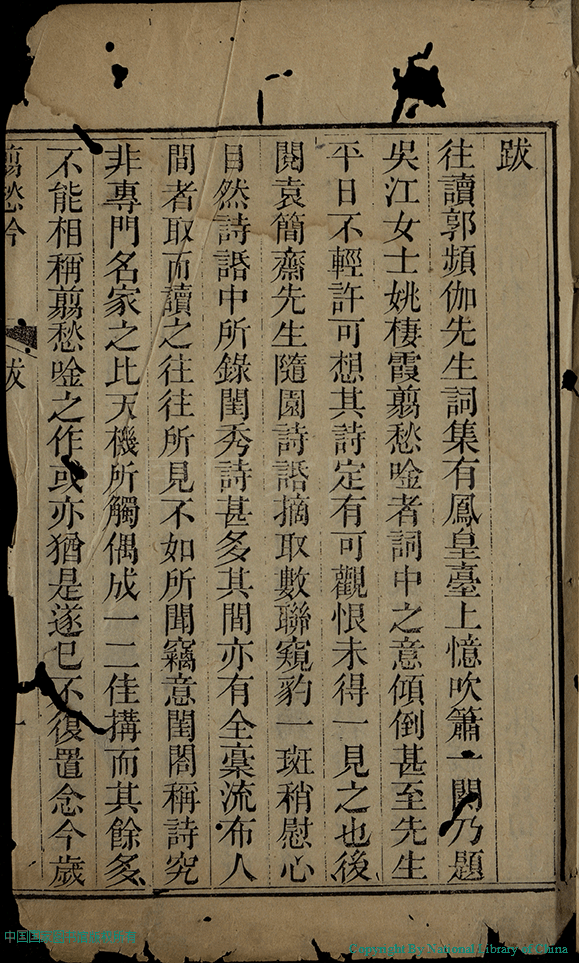 跋
往讀郭頻伽先生詞集有鳳皇臺上憶吹簫一闋乃題
吳江女士姚棲霞翦愁唫者詞中之意傾倒甚至先生
平日不輕許可想其詩定有可觀恨未得一見之也後
閱袁簡齋先生隨園詩話摘取數聯窺豹一斑稍慰心
目然詩話中所錄閨秀詩甚多其間亦有全稾流布人
間者取而讀之往往所見不如所聞竊意閨閤稱詩究
非專門名家之比天機所觸偶成一二佳搆而其餘多
不能相稱翦愁唫之作或亦猶是遂已不復置念今歲
翦愁吟
跋
一
中国国家图书馆
Copyright By National Library of China